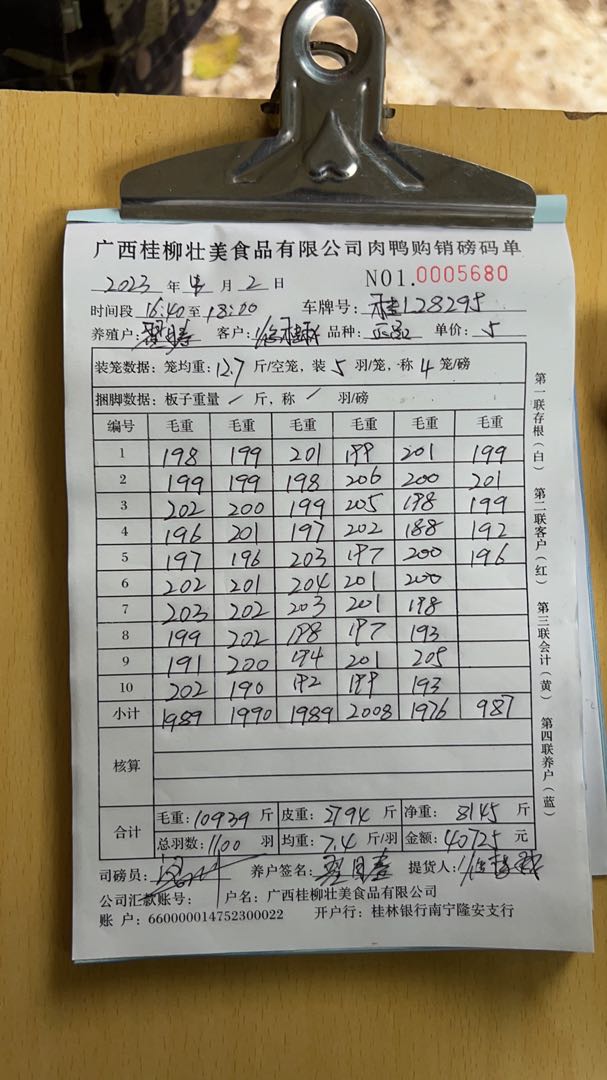 广西桂柳壮美食品有限公司肉鸭购销磅码单
2023 年 4 月 2 日 NO1.0005680
时间段 16:40 至 18:00 车牌号: 桂L28295
养殖户: 客户: 品种: 正品 单价: 5
装笼数据: 笼均重: 12.7 斤/空笼, 装 5 羽/笼, 称 4 笼/磅
捆脚数据: 板子重量 / 斤, 称 / 羽/磅
编号 毛重 毛重 毛重 毛重 毛重 毛重
1 198 199 201 199 201 199
2 199 199 198 206 200 201
3 202 200 199 205 198 199
4 196 201 197 202 188 192
5 197 196 203 197 200 196
6 202 201 204 201 200
7 203 202 203 201 198
8 199 202 198 197 193
9 191 200 194 201 205
10 202 190 192 199 193
小计 1989 1990 1989 2008 1976 987
核算
合计 毛重: 10939 斤 皮重: 2794 斤 净重: 8145 斤
总羽数: 1100 羽 均重: 7.4 斤/羽 金额: 40725 元
司磅员: 养户签名: 提货人:
公司汇款账号: 户名: 广西桂柳壮美食品有限公司
账 户: 660000014752300022 开户行: 桂林银行南宁隆安支行
第一联存根(白) 第二联客户(红) 第三联会计(黄) 第四联养户(蓝)